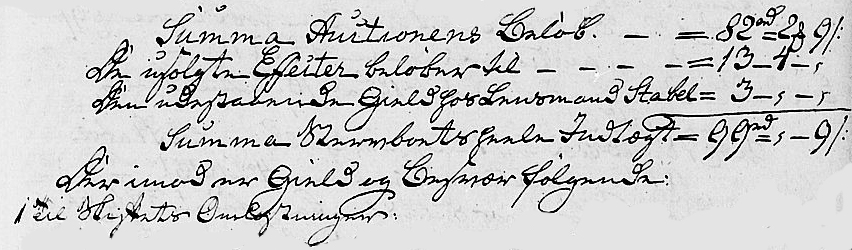 Summa Auctionens Beløb. — = 82rd = 2 ß 9/:
De usolgte Effecter beløber til — — — — = 13 — 4 — ,
Den udestaaende Gield hos Lensmand Stabel = 3 — , — ,
Summa Stervboets heele Indtægt = 99rd = , — 9/:
Der imod er Gield og Besvær følgende:
1 Til Skiftets Omkostninger: